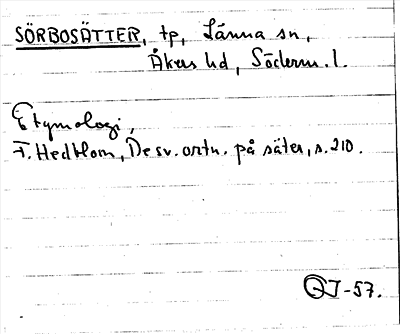 SÖRBOSÄTTER, tp, Länna sn,
Åkers hd, Söderm. l.
Etymologi,
F. Hedblom, De sv. ortn. på säter, s. 210.
J-57.